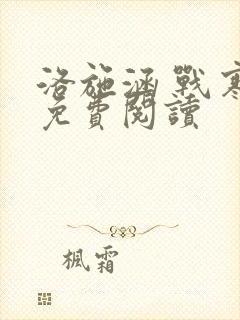 洛施涵戰寒
免費閱讀
楓霜